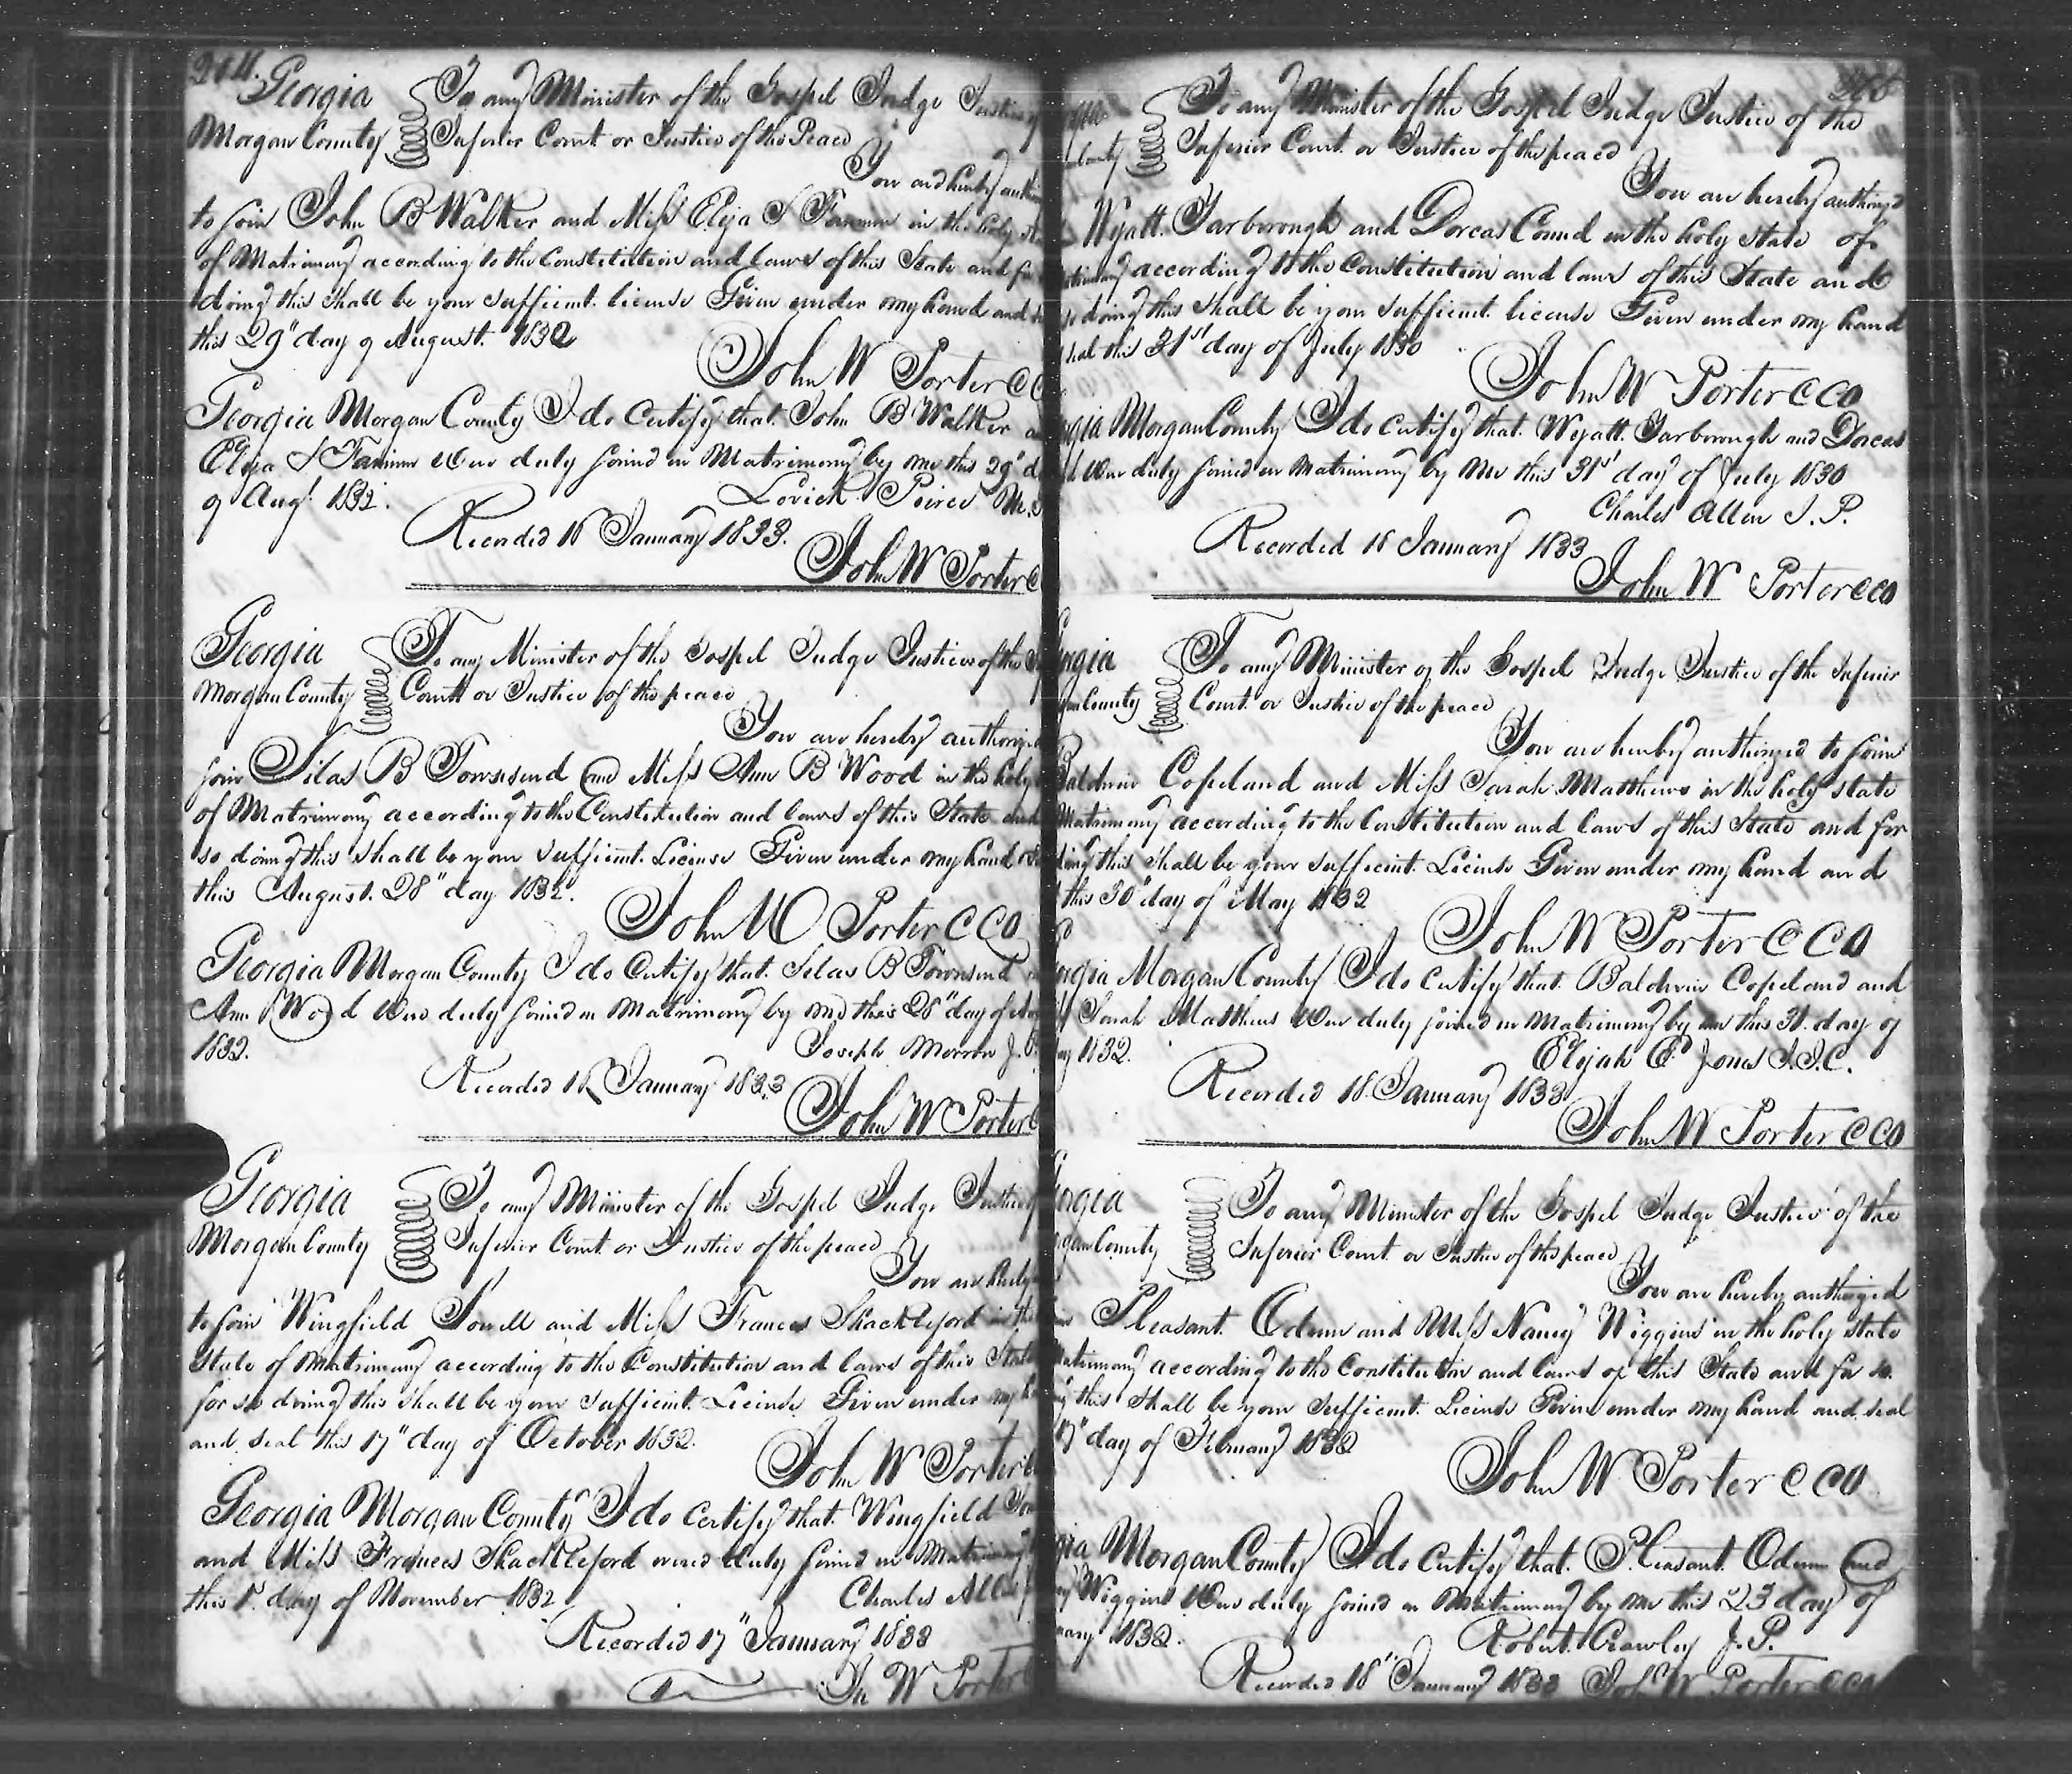 264.
Georgia
Morgan County
To any Minister of the Gospel Judge Justice of
Inferior Court or Justice of the Peace
You are hereby
to join John B Walker and Miss Eliza S in the holy
of Matrimony according to the Constitution and laws of this State and for
doing this shall be your sufficient license Given under my hand and
this 29" day of August 1832
John W Porter C C
Georgia Morgan County I do Certify that John B Walker
Eliza S were duly joined in Matrimony by me this 29"
of Augt 1832.
Lovick Peirce M.
Recorded 16 January 1833.
John W Porter C
Georgia
Morgan County
To any Minister of the Gospel Judge Justice of the
Court or Justice of the peace
You are hereby
join Silas B Townsend and Miss Ann B Wood in the holy
of Matrimony according to the Constitution and laws of this State and
so doing this shall be your sufficient License Given under my hand
this August 28" day 1832.
John W Porter C C O
Georgia Morgan County I do Certify that Silas B Townsend
Ann Wood were duly joined in Matrimony by me this 28" day of
1832.
Joseph Morrow J. P.
Recorded 16 January 1833
John W Porter
Georgia
Morgan County
To any Minister of the Gospel Judge Justice
Inferior Court or Justice of the peace
You are
to join Wingfield Sowell and Miss Frances Shackleford in the
State of Matrimony according to the Constitution and laws of this State
for so doing this shall be your sufficient License Given under my
and seal this 17" day of October 1832.
John W Porter
Georgia Morgan County I do certify that Wingfield
and Miss Frances Shackleford were duly joined in Matrimony
this 1st day of November 1832
Charles Allen
Recorded 17" January 1833
Jn W Porter
County
To any Minister of the Gospel Judge Justice of the
Inferior Court or Justice of the peace
You are hereby authorized
Wyatt Yarborough and Dorcas in the holy state of
according to the Constitution and laws of this State and
doing this shall be your sufficient license Given under my hand
this 31st day of July 1830
John W Porter C C O
Morgan County I do certify that Wyatt Yarborough and Dorcas
were duly joined in Matrimony by me this 31st day of July 1830
Charles Allen J. P.
Recorded 16 January 1833
John W Porter C C O
County
To any Minister of the Gospel Judge Justice of the Inferior
Court or Justice of the peace
You are hereby authorized to join
Baldwin Copeland and Miss Sarah Matthews in the holy state
Matrimony according to the Constitution and laws of this State and for
this shall be your sufficient License Given under my hand and
this 30" day of May 1832
John W Porter C C O
Morgan County I do certify that Baldwin Copeland and
Sarah Matthews were duly joined in Matrimony by me this 31 day of
1832.
Elijah E Jones J. I. C.
Recorded 18 January 1833
John W Porter C C O
County
To any Minister of the Gospel Judge Justice of the
Inferior Court or Justice of the peace
You are hereby authorized
Pleasant Odum and Miss Nancy Wiggins in the holy state
Matrimony according to the Constitution and laws of this State and for so
this shall be your sufficient License Given under my hand and seal
17" day of February 1832
John W Porter C C O
Morgan County I do certify that Pleasant Odum and
Wiggins were duly joined in Matrimony by me this 23 day of
1832.
Robert Crawley J. P.
Recorded 18" January 1833 John W Porter C C O